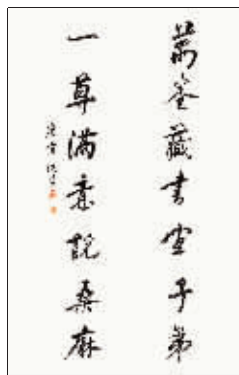 萬卷藏書宜子弟
一尊滿意說桑麻